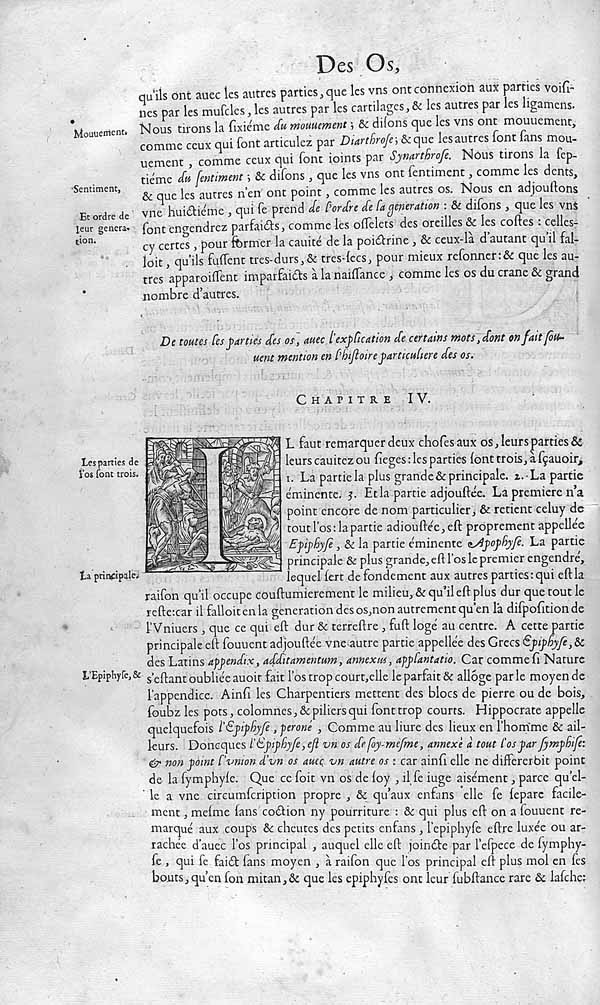 Des Os,
qu'ils ont auec les autres parties, que les vns ont connexion aux parties voisi-
nes par les muscles, les autres par les cartilages, & les autres par les ligamens.
Mouuement.
Nous tirons la sixiéme du mouuement; & disons que les vns ont mouuement,
comme ceux qui sont articulez par Diarthrose; & que les autres sont sans mou-
uement, comme ceux qui sont ioints par Synarthrose. Nous tirons la sep-
Sentiment,
tiéme du sentiment; & disons, que les vns ont sentiment, comme les dents,
& que les autres n'en ont point, comme les autres os. Nous en adjoustons
Et ordre de
leur genera-
tion.
vne huictiéme, qui se prend de l'ordre de la generation: & disons, que les vns
sont engendrez parfaicts, comme les osselets des oreilles & les costes: celles-
cy certes, pour former la cauité de la poictrine, & ceux-là d'autant qu'il fal-
loit, qu'ils fussent tres-durs, & tres-secs, pour mieux resonner: & que les au-
tres apparoissent imparfaicts à la naissance, comme les os du crane & grand
nombre d'autres.
De toutes les parties des os, auec l'explication de certains mots, dont on fait sou-
uent mention en l'histoire particuliere des os.
CHAPITRE IV.
Les parties de
l'os sont trois.
IL faut remarquer deux choses aux os, leurs parties &
leurs cauitez ou sieges: les parties sont trois, à sçauoir,
1. La partie la plus grande & principale. 2. La partie
éminente. 3. Et la partie adjoustée. La premiere n'a
point encore de nom particulier, & retient celuy de
tout l'os: la partie adioustée, est proprement appellée
Epiphyse, & la partie éminente Apophyse. La partie
principale & plus grande, est l'os le premier engendré,
La principale.
lequel sert de fondement aux autres parties: qui est la
raison qu'il occupe coustumierement le milieu, & qu'il est plus dur que tout le
reste: car il falloit en la generation des os, non autrement qu'en la disposition de
l'Vniuers, que ce qui est dur & terrestre, fust logé au centre. A cette partie
principale est souuent adjoustée vne autre partie appellée des Grecs Epiphyse, &
des Latins appendix, additamentum, annexus, applantatio. Car comme si Nature
L'Epiphyse, &
s'estant oubliée auoit fait l'os trop court, elle le parfait & allõge par le moyen de
l'appendice. Ainsi les Charpentiers mettent des blocs de pierre ou de bois,
soubz les pots, colomnes, & piliers qui sont trop courts. Hippocrate appelle
quelquefois l'Epiphyse, perone, Comme au liure des lieux en l'homme & ail-
leurs. Doncques l'Epiphyse, est vn os de soy-mesme, annexé à tout l'os par symphise:
& non point l'vnion d'vn os auec vn autre os: car ainsi elle ne differerbit point
de la symphyse. Que ce soit vn os de soy, il se iuge aisément, parce qu'el-
le a vne circumscription propre, & qu'aux enfans elle se separe facile-
ment, mesme sans coction ny pourriture: & qui plus est on a souuent re-
marqué aux coups & cheutes des petits enfans, l'epiphyse estre luxée ou ar-
rachée d'auec l'os principal, auquel elle est joincte par l'espece de symphy-
se, qui se faict sans moyen, à raison que l'os principal est plus mol en ses
bouts, qu'en son mitan, & que les epiphyses ont leur substance rare & lasche: